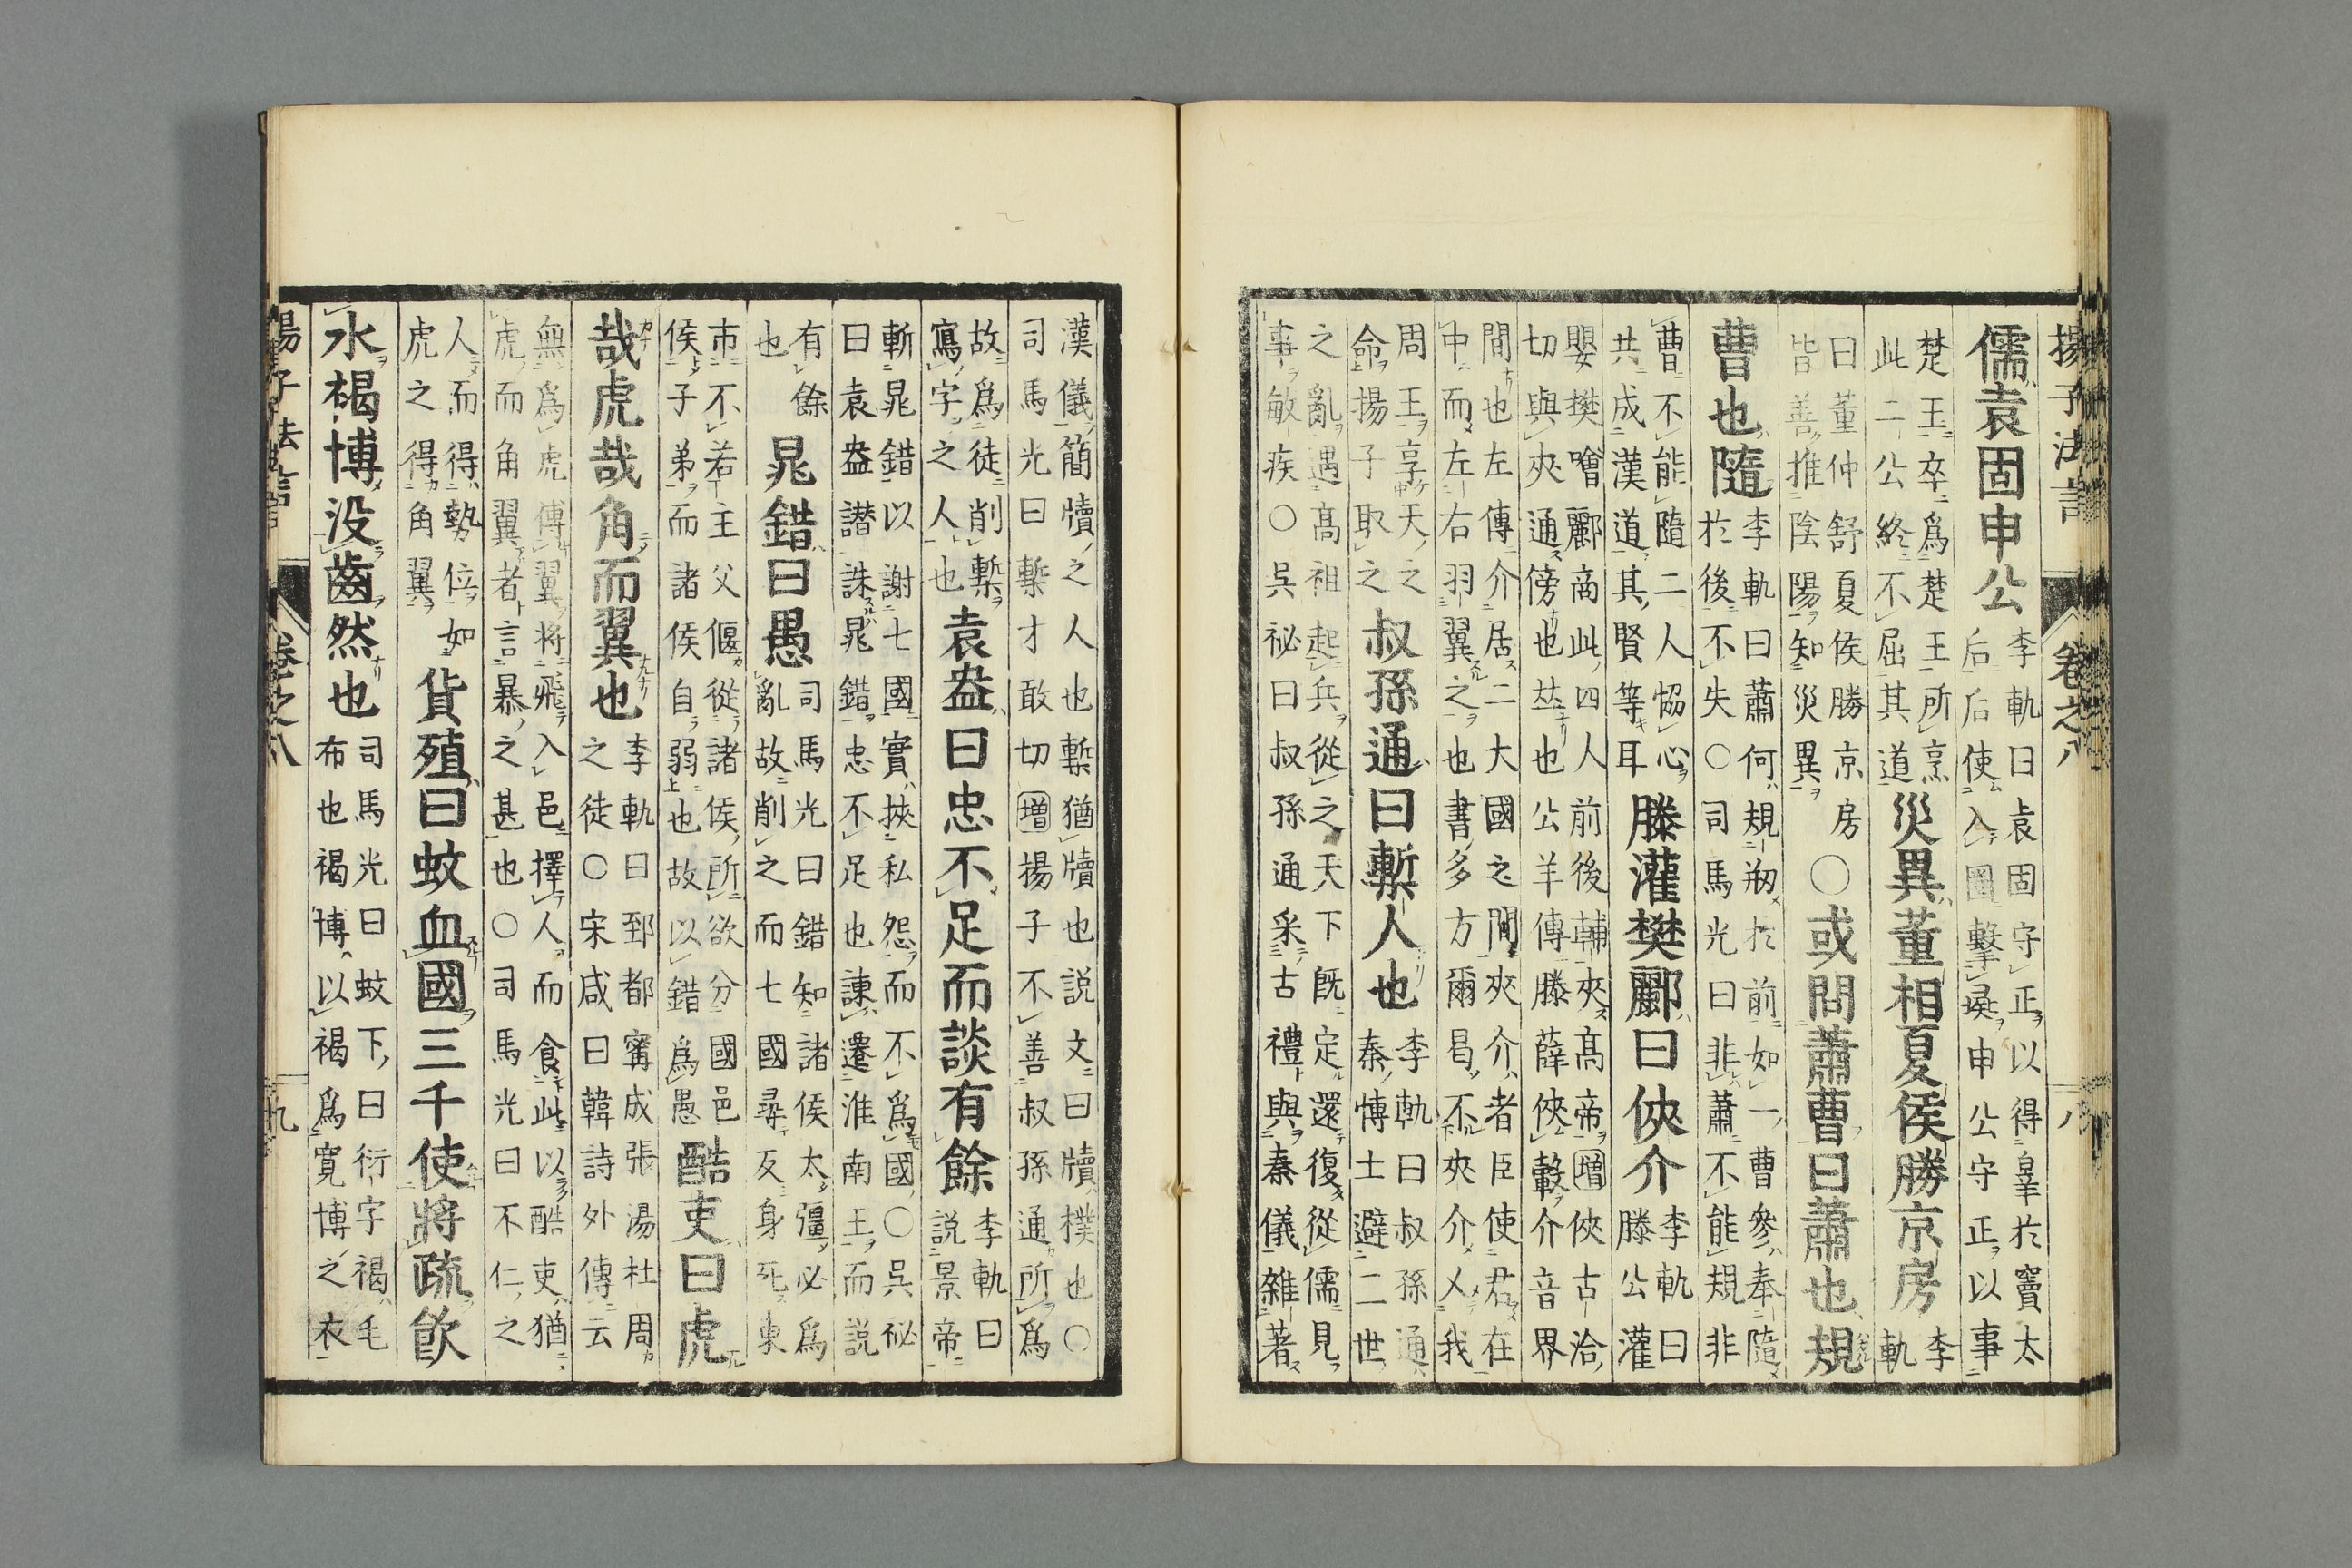 揚子法言 卷之八 八
儒袁固申公
李軌曰袁固守正以得辠於竇太
后后使入圈擊彘申公守正以事
楚王卒爲楚王所烹
此二公終不屈其道
災異董相夏侯勝京房
李
軌
曰董仲舒夏侯勝京房
皆善推陰陽知災異
○或問蕭曹曰蕭也規
曹也隨
李軌曰蕭何規剏於前如一曹參奉隨
於後不失○司馬光曰非蕭不能規非
曹不能隨二人恊心
共成漢道其賢等耳
滕灌樊酈曰俠介
李軌曰
滕公灌
嬰樊噲酈商此四人前後輔夾髙帝增俠古洽
切與夾通傍也㚘也公羊傳滕薛俠轂介音界
間也左傳介居二大國之間夾介者臣使君在
中而左右羽翼之也書多方爾曷不夾介乂我
周王享天之
命揚子取之
叔孫通曰槧人也
李軌曰叔孫通
秦博士避二世
之亂遇髙祖起兵從之天下旣定還復從儒見
事敏疾○吳祕曰叔孫通采古禮與秦儀雜著
漢儀簡牘之人也槧猶牘也説文曰牘樸也○
司馬光曰槧才敢切增揚子不善叔孫通所爲
故爲徒削槧
寫字之人也
袁盎曰忠不足而談有餘
李軌曰
説景帝
斬晁錯以謝七國實挾私怨而不爲國○吳祕
曰袁盎譖誅晁錯忠不足也諫遷淮南王而説
有餘
也
晁錯曰愚
司馬光曰錯知諸侯太彊必爲
亂故削之而七國尋反身死東
市不若主父偃從諸侯所欲分國邑
侯子弟而諸侯自弱也故以錯爲愚
酷吏曰虎
哉虎哉角而翼也
李軌曰郅都甯成張湯杜周
之徒○宋咸曰韓詩外傳云
無爲虎傅翼將飛入邑擇人而食此以酷吏猶
虎而角翼者言暴之甚也○司馬光曰不仁之
人而得勢位如
虎之得角翼
貨殖曰蚊血國三千使將疏飲
水褐博没齒然也
司馬光曰蚊下曰衍字褐毛
布也褐博以褐爲寬博之衣
揚子法言 卷之八 九